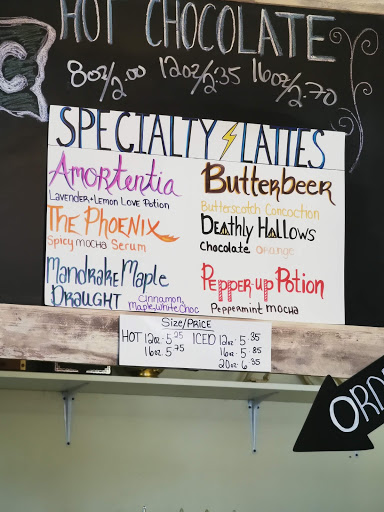 HOT CHOCOLATE
8oz/2.00 12oz/2.35 16oz/2.70
C
SPECIALTY LATTES
Amortentia
Lavender+Lemon Love Potion
The Phoenix
Spicy mocha Serum
Mandrake Maple
Draught
Cinnamon,
Maple, White Choc
Butterbeer
Butterscotch Concoction
Deathly Hallows
Chocolate orange
Pepper-up Potion
Peppermint mocha
Size/Price
HOT 12oz-5.25 ICED 12oz-5.35
16oz-5.75 16oz-5.85
20oz-6.35